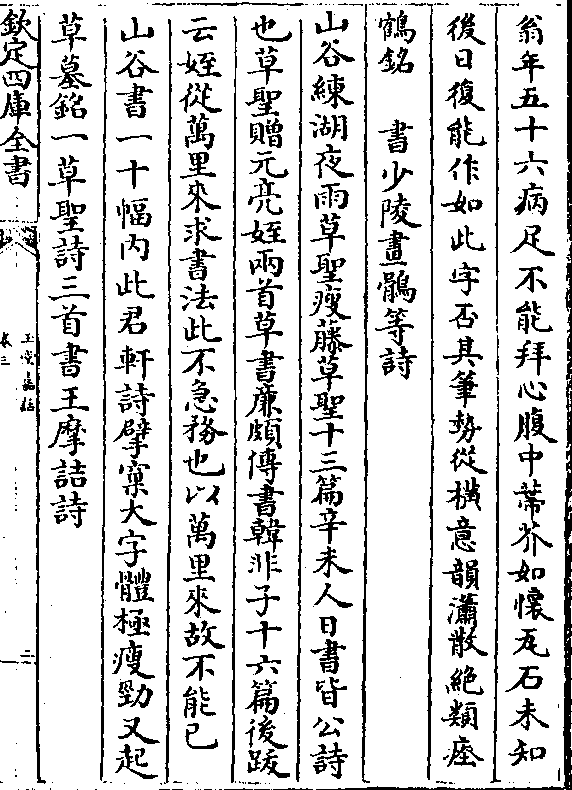 翁年五十六病足不能拜心腹中蔕芥如懷瓦石未知
後日復能作如此字否其筆勢從橫意韻瀟散絶類瘞
鶴銘　書少陵畫鶻等詩
山谷練湖夜雨草聖瘦藤草聖十三篇辛未人日書皆公詩
也草聖贈元亮姪兩首草書廉頗傳書韓非子十六篇後跋
云姪從萬里來求書法此不急務也以萬里來故不能已
山谷書一十幅内此君軒詩擘窠大字體極瘦勁又起
草墓銘一草聖詩三首書王摩詰詩
欽定四庫全書
卷三